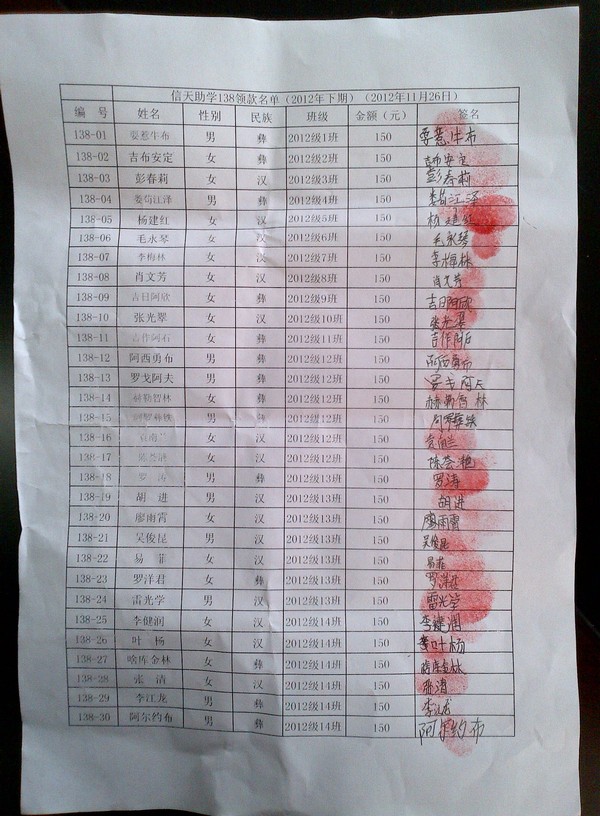 信天助学138领款名单（2012年下期）（2012年11月26日）
编 号 姓名 性别 民族 班级 金额（元） 签名
138-01 姜惹牛布 男 彝 2012级1班 150 姜惹牛布
138-02 吉布安定 女 彝 2012级2班 150 吉布安定
138-03 彭春莉 女 汉 2012级3班 150 彭春莉
138-04 娄苟江泽 男 彝 2012级4班 150 娄苟江泽
138-05 杨建红 女 汉 2012级5班 150 杨建红
138-06 毛永琴 女 汉 2012级6班 150 毛永琴
138-07 李梅林 女 汉 2012级7班 150 李梅林
138-08 肖文芳 女 汉 2012级8班 150 肖文芳
138-09 吉日阿欣 女 彝 2012级9班 150 吉日阿欣
138-10 张光翠 女 汉 2012级10班 150 张光翠
138-11 吉作阿石 女 彝 2012级11班 150 吉作阿石
138-12 阿西勇布 男 彝 2012级12班 150 阿西勇布
138-13 罗戈阿夫 男 彝 2012级12班 150 罗戈阿夫
138-14 赫勒智林 女 彝 2012级12班 150 赫勒智林
138-15 男 彝 2012级12班 150
138-16 袁南兰 女 汉 2012级12班 150 袁南兰
138-17 女 汉 2012级12班 150
138-18 罗涛 男 彝 2012级13班 150 罗涛
138-19 胡 进 男 汉 2012级13班 150 胡进
138-20 廖雨霄 女 汉 2012级13班 150 廖雨霄
138-21 吴俊昆 男 汉 2012级13班 150 吴俊昆
138-22 易 菲 女 汉 2012级13班 150 易菲
138-23 罗洋君 女 彝 2012级13班 150 罗洋君
138-24 雷光学 男 汉 2012级13班 150 雷光学
138-25 李健润 女 汉 2012级14班 150 李健润
138-26 叶 杨 女 汉 2012级14班 150 叶杨
138-27 啥库金林 女 彝 2012级14班 150 啥库金林
138-28 张 清 女 汉 2012级14班 150 张清
138-29 李江龙 男 彝 2012级14班 150 李江龙
138-30 阿尔约布 男 彝 2012级14班 150 阿尔约布